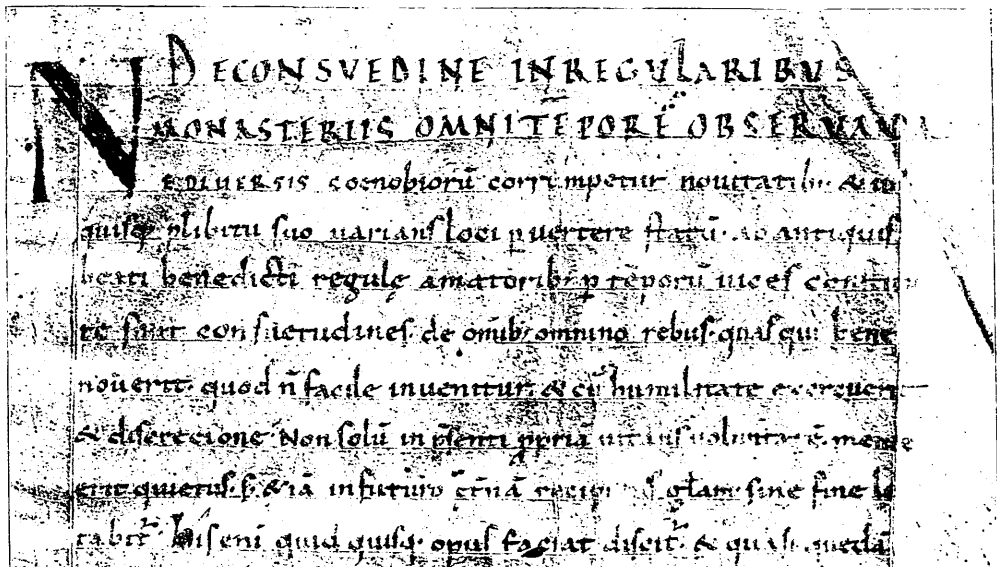 DE CONSVEDINE IN REGVLARIBVS
MONASTERIIS OMNI TĒPORE OBSERVAN
NE DIVERSIS coenobiorū corrūpetur nouitatib; &
quisq; plibitu suo uarians loci puertere statū. ab antiquis
beati benedicti regulę amatorib; p tēporū uices
te sunt consuetudines de omib; omnino rebus. quas qui bene
nouerit. quod n̄ facile inuenitur. & cū humilitate exercuerit
& discrecione. Non solū in p̄senti ppriā uitans mente
erit quietus. s; & iā in futuro ęt̄nā glam. sine fine lę
tabit̄. His eni quid quisq; opus faciat discit̄. & quedā